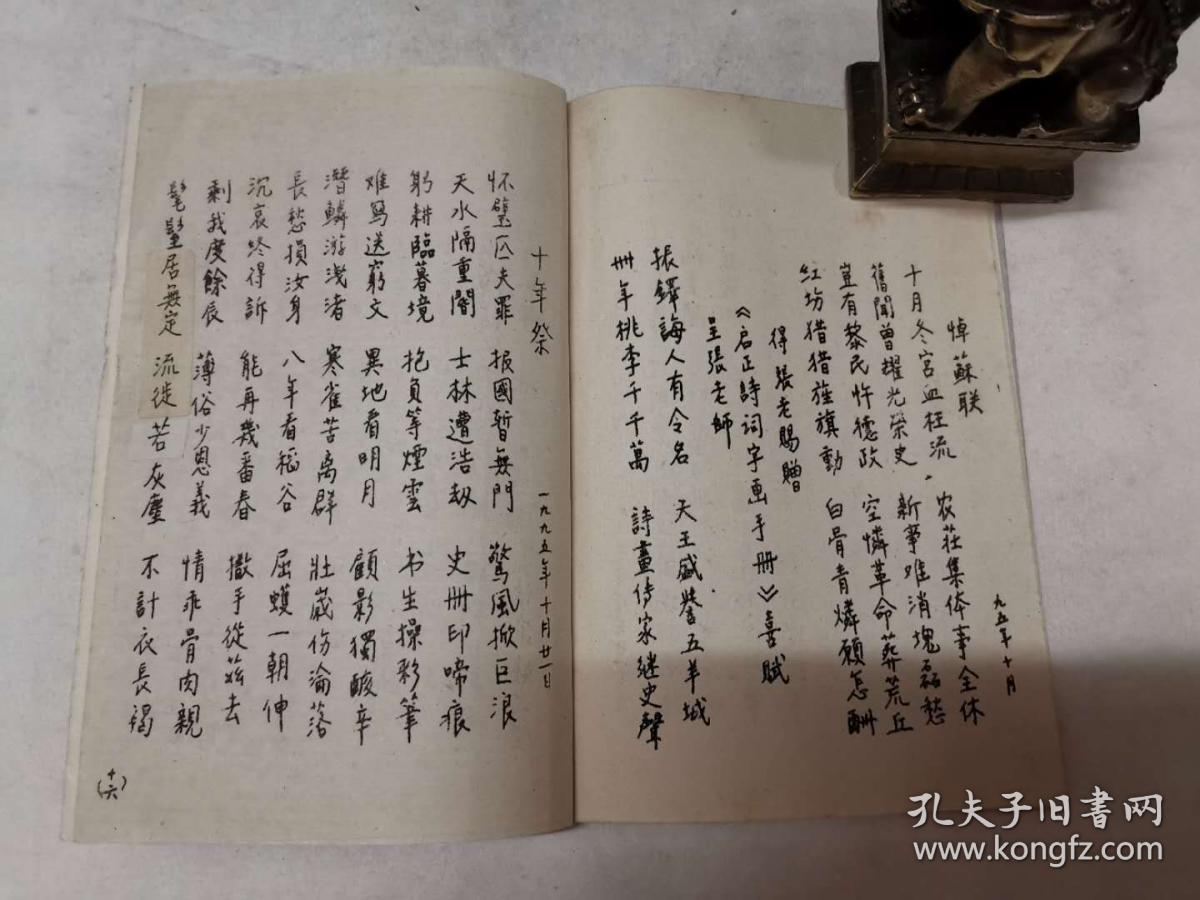 悼蘇联
九五年十月
十月冬宮血枉流　农莊集体事全休
舊聞曾耀光荣史　新事难消塊磊愁
豈有黎民忤德政　空憐革命葬荒丘
红坊猎猎旌旗動　白骨青燐願怎酬
得張老賜贈
《启正詩词字画手册》喜賦
呈張老師
振鐸誨人有令名　天王盛誉五羊城
卅年桃李千千萬　詩畫传家继史聲
十年祭
一九九五年十月廿一日
怀璧匹夫罪　报國暫無門　驚風掀巨浪
天水隔重閽　士林遭浩劫　史册印啼痕
躬耕臨暮境　抱負等煙雲　书生操彩筆
难写送窮文　異地看明月　顧影獨酸辛
潛鱗游浅渚　寒雀苦离群　壯歲伤淪落
長愁損汝身　八年看稻谷　屈蠖一朝伸
沉哀终得訴　能再幾番春　撒手從兹去
剩我度餘辰　薄俗少恩義　情乖骨肉親
髦髫居無定　流徙若灰塵　不計衣長褐
(十六)
孔夫子旧書网
www.kongfz.com